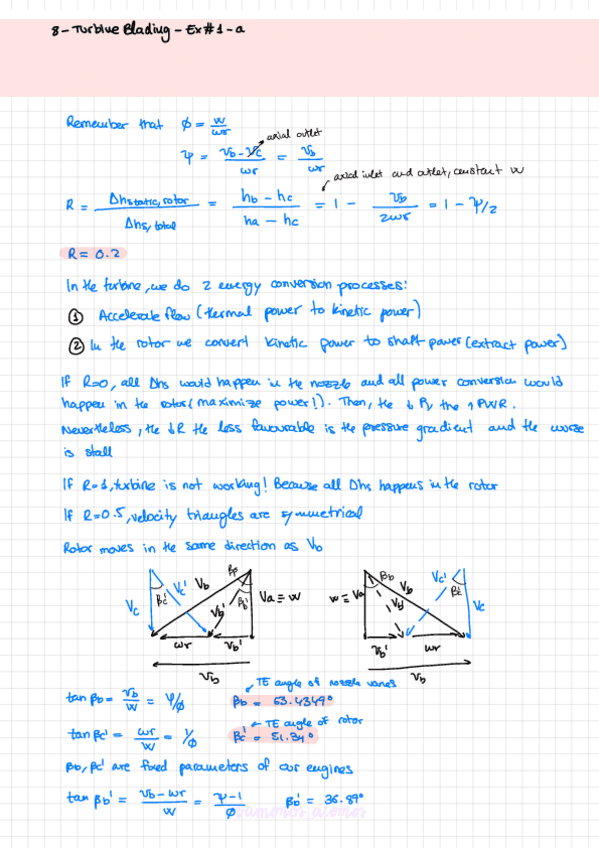 8 - Turbine Blading - Ex#1 - a
Remember that ϕ = w/ωr
axial outlet
ψ = (Vb - Vc)/ωr = Vb/ωr
axial inlet and outlet, constant w
R = Δhstatic,rotor / Δhs,total = (hb - hc)/(ha - hc) = 1 - Vb/2ωr = 1 - ψ/2
R = 0.2
In the turbine, we do 2 energy conversion processes:
① Accelerate flow (thermal power to kinetic power)
② In the rotor we convert kinetic power to shaft power (extract power)
If R=0, all Δhs would happen in the nozzle and all power conversion would
happen in the rotor (maximize power!). Then, the ↓ R, the ↑ PWR.
Nevertheless, the ↓R the less favourable is the pressure gradient and the worse
is stall
If R=1, turbine is not working! Because all Δhs happens in the rotor
If R=0.5, velocity triangles are symmetrical
Rotor moves in the same direction as Vb
Vc βc' Vc' Vb βb Vb' βb' Va ≡ w
ωr Vb'
Vb
w ≡ Va βb Vb Vb' Vc' βc' Vc
Vb' ωr
Vb
tan βb = Vb/w = ψ/ϕ
TE angle of nozzle vanes
βb = 63.4349°
tan βc' = ωr/w = 1/ϕ
TE angle of rotor
βc' = 51.34°
βb, βc' are fixed parameters of our engines
tan βb' = (Vb - ωr)/w = (ψ - 1)/ϕ
βb' = 36.89°